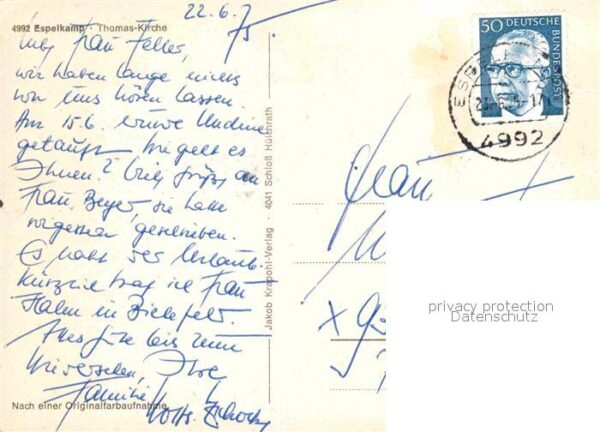 22.6.75
4992 Espelkamp · Thomas-Kirche
Frau Feller,
wir haben lange nichts
von uns hören lassen.
Am 15.6. wurde Undine
getauft. Wie geht es
Ihnen? Viele Grüße an
Frau Beyer, sie hatte
geschrieben.
Es naht der Urlaub.
Kürzlich traf ich Frau
Halm in Bielefeld.
Alles Gute bis zum
Wiedersehen, Ihre
Familie
Nach einer Originalfarbaufnahme
Jakob Krapohl-Verlag · 4041 Schloß Hülchrath
50 DEUTSCHE
BUNDESPOST
4992
Frau
privacy protection
Datenschutz